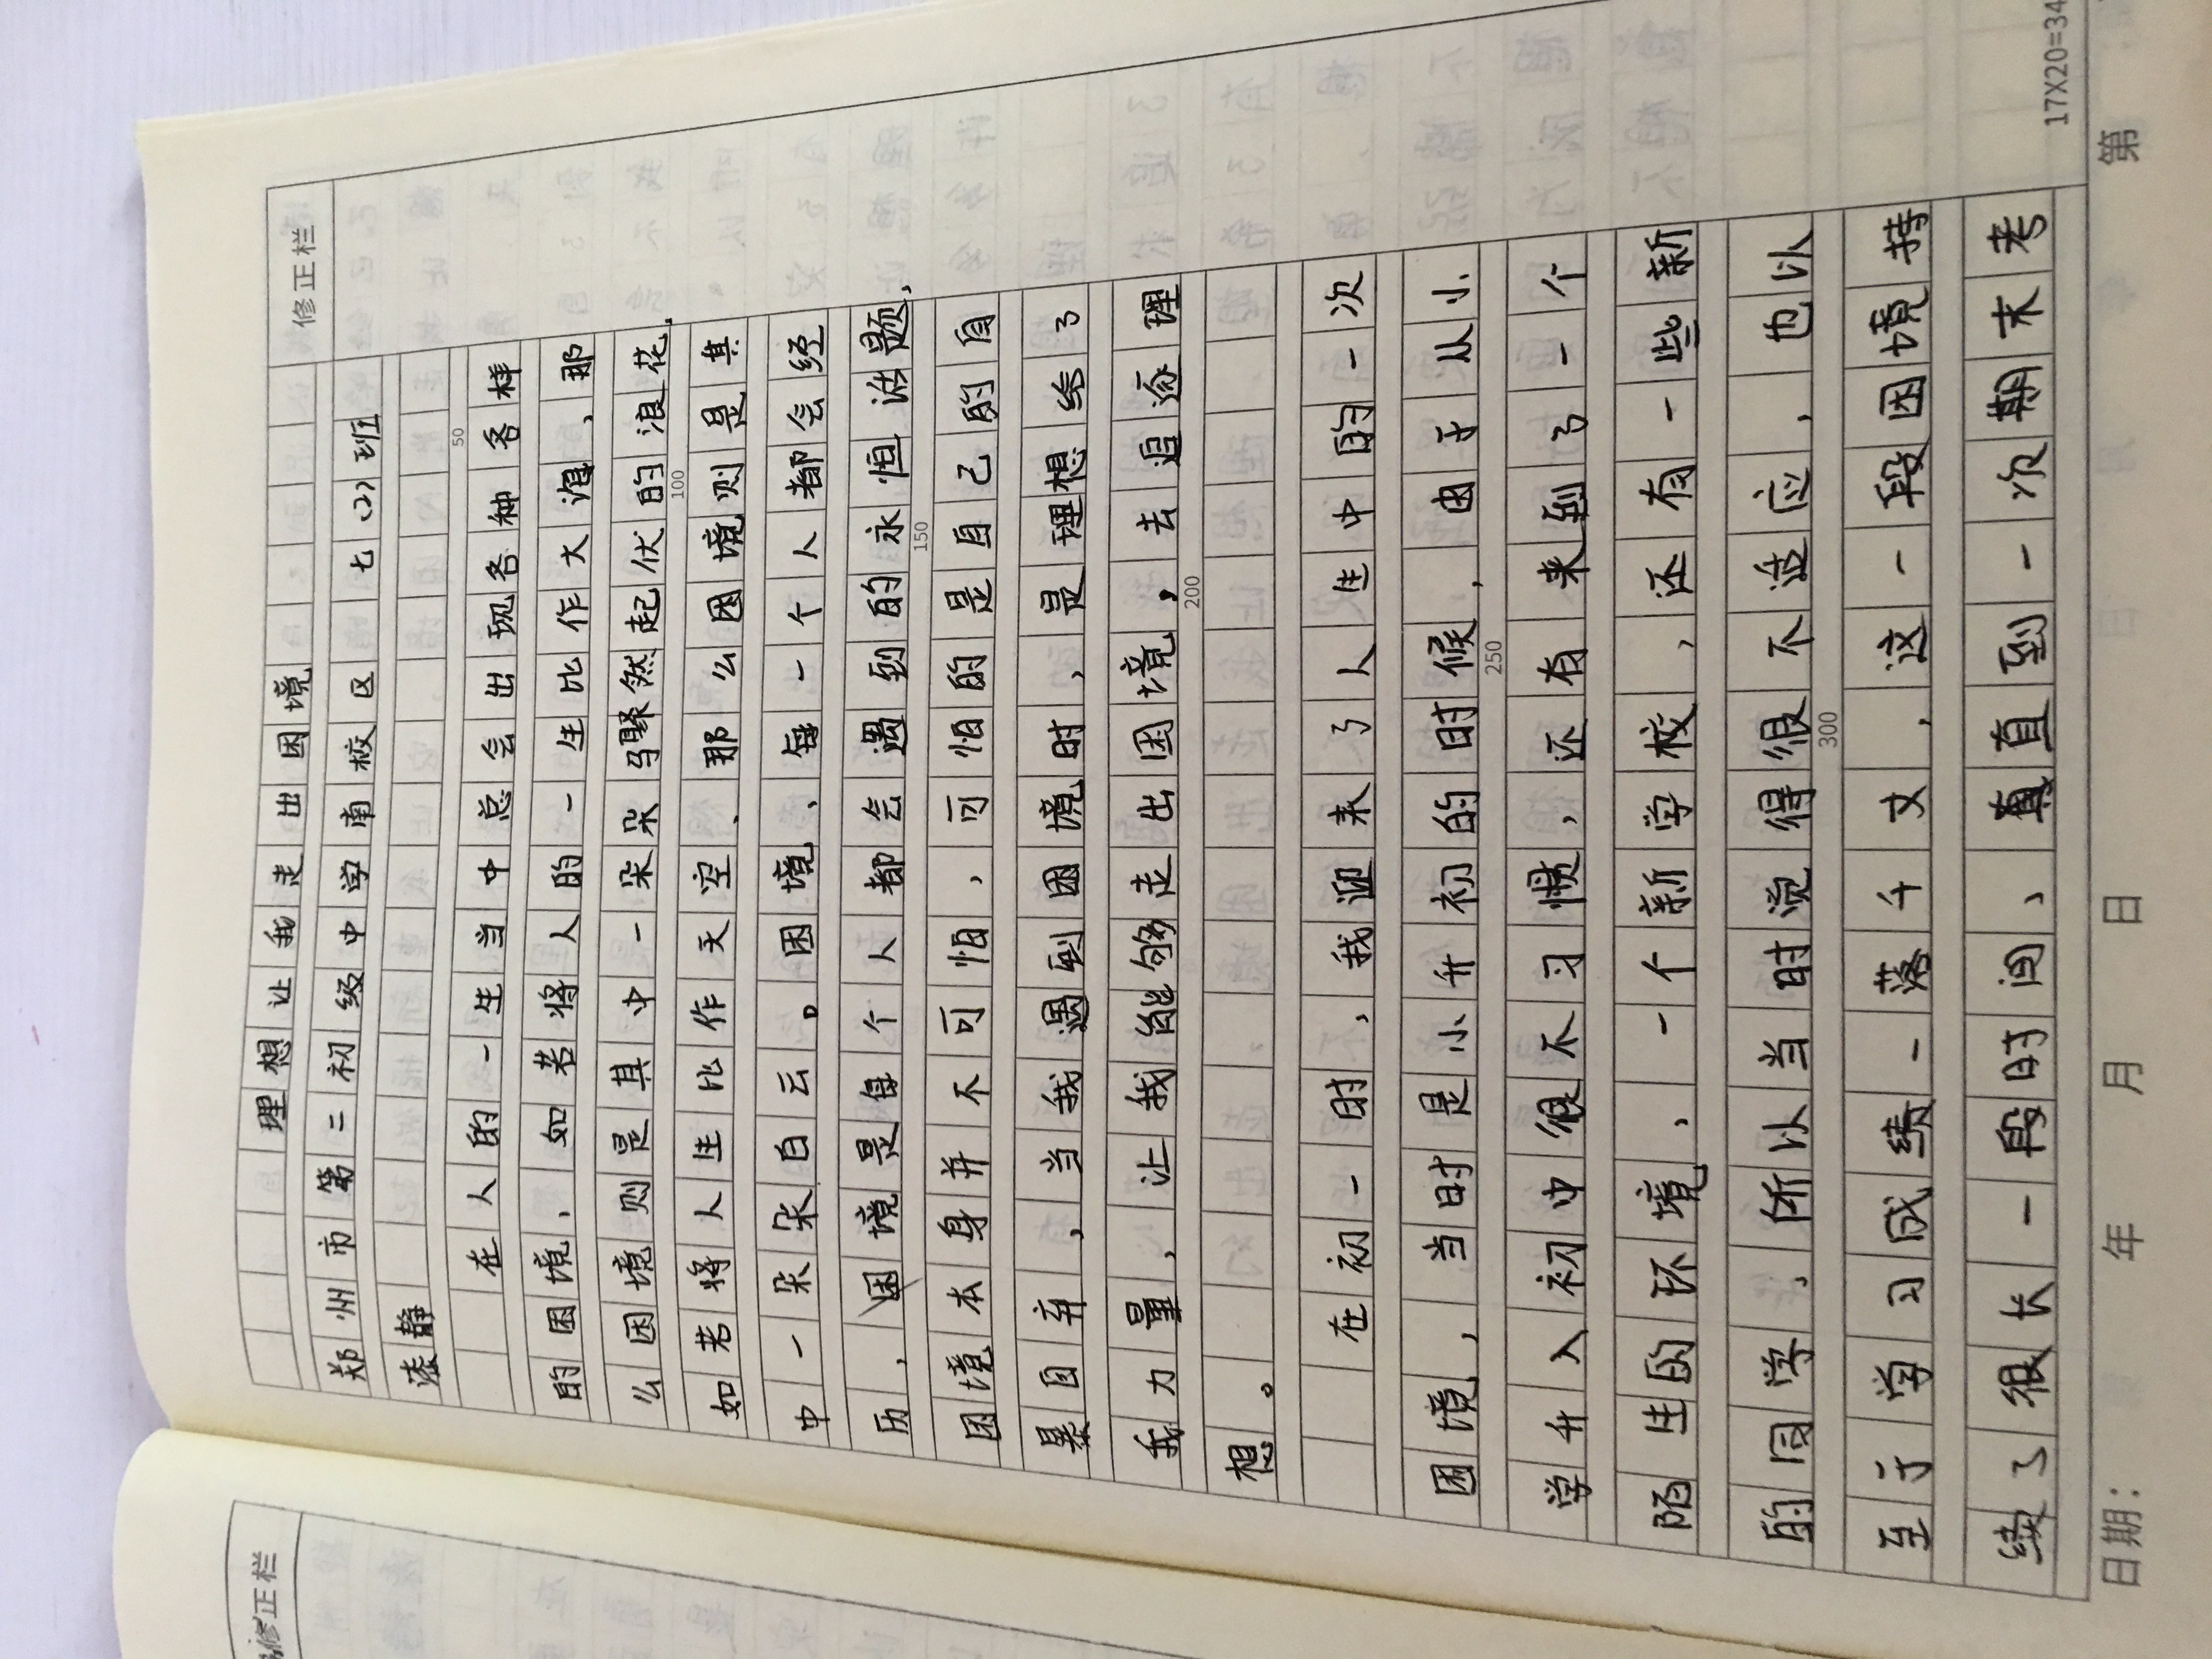 修正栏
理想让我走出困境
郑州市第二初级中学南校区 七(2)班
漆静
50
在人的一生当中总会出现各种各样
的困境，如若将人的一生比作大海，那
么困境则是其中一朵朵骤然起伏的浪花，
100
如若将人生比作天空，那么困境则是其
中一朵朵白云。困境，每一个人都会经
历，困境是每个人都会遇到的永恒话题，
150
困境本身并不可怕，可怕的是自己的自
暴自弃，当我遇到困境时，是理想给了
我力量，让我能够走出困境，去追逐理
200
想。
在初一时，我迎来了人生中的一次
困境，当时是小升初的时候，由于从小
250
学升入初中很不习惯，还有来到了一个
陌生的环境，一个新学校，还有一些新
的同学，所以当时觉得很不适应，也以
300
至于学习成绩一落千丈，这一段困境持
续了很长一段时间，直到一次期末考
17X20=34
日期： 年 月 日 第
修正栏